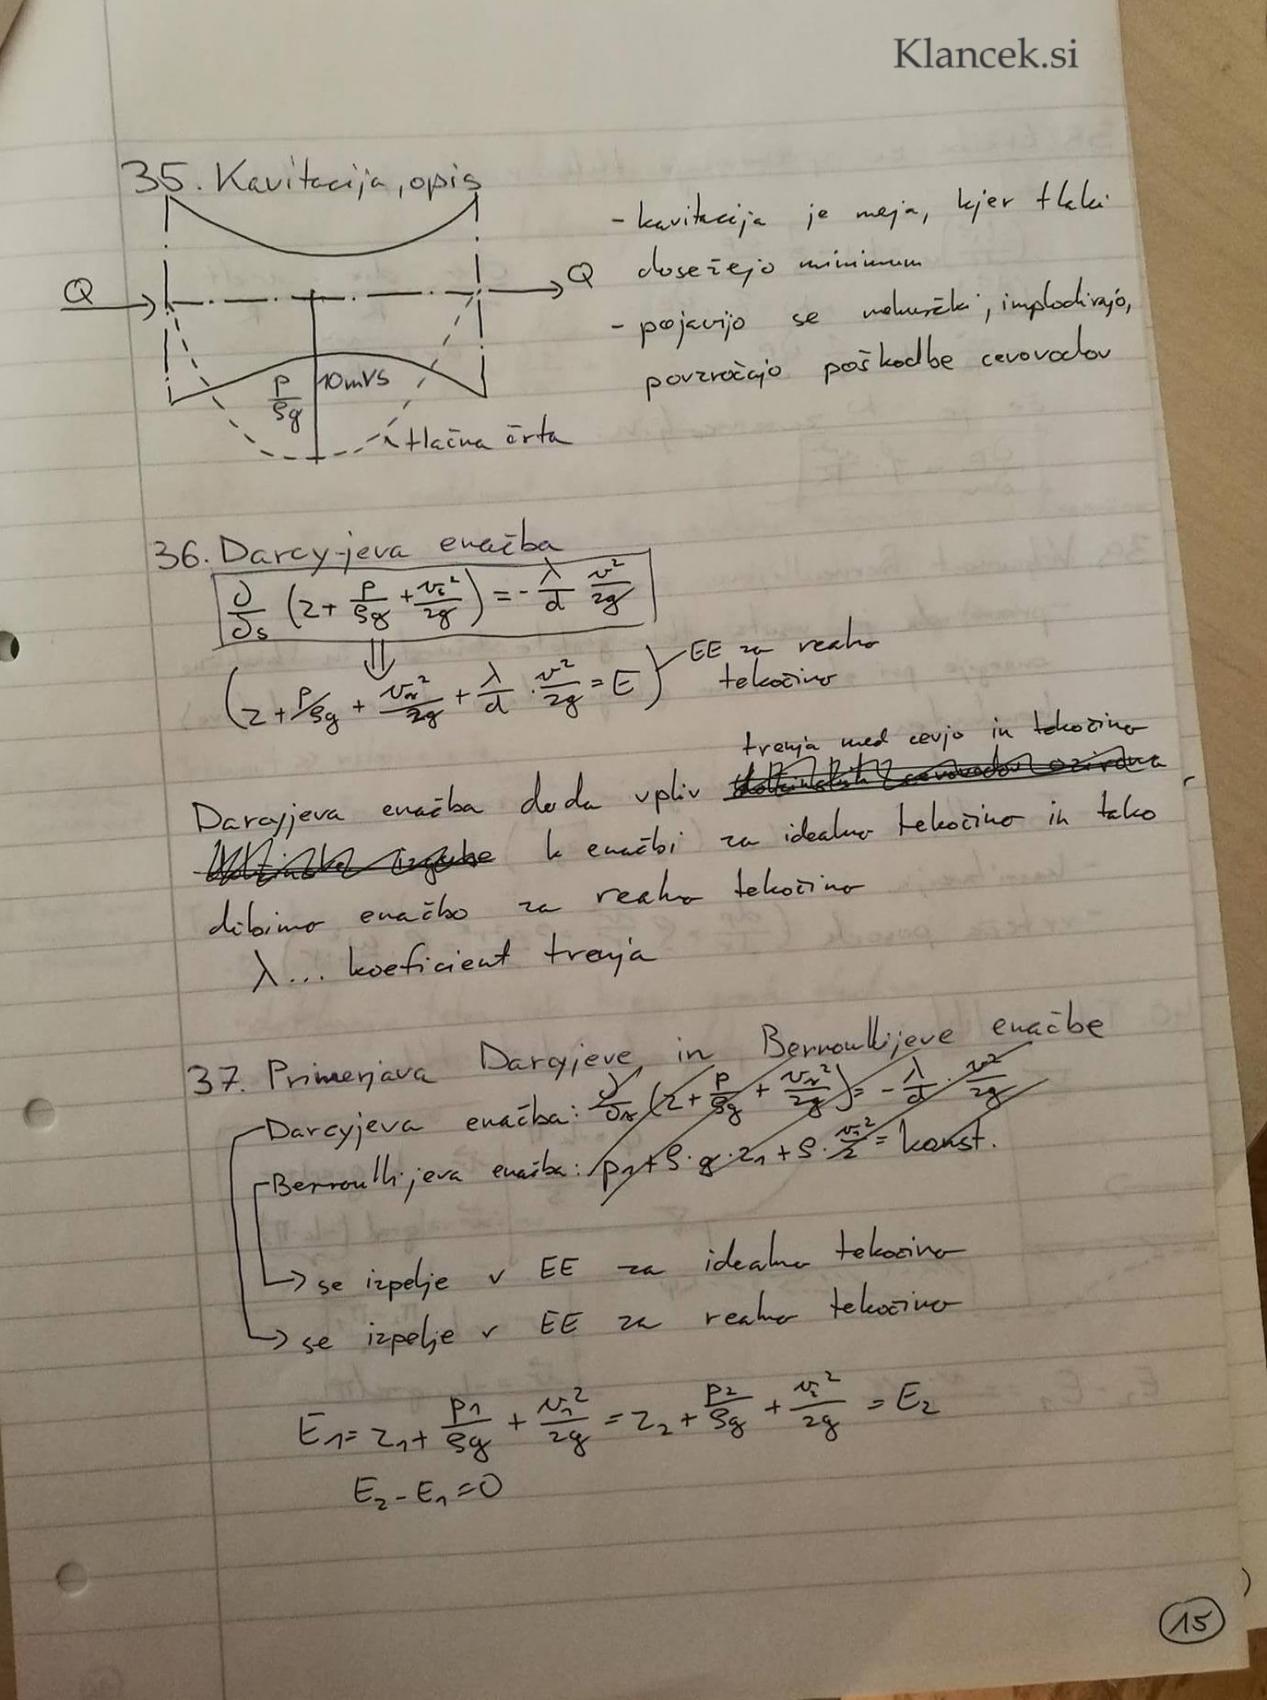 Klancek.si
35. Kavitacija, opis
Q
Q
p/ρg
10mVS
tlačna črta
- kavitacija je meja, kjer tlaki
dosežejo minimum
- pojavijo se mehurčki, implodirajo,
povzročajo poškodbe cevovodov
36. Darcy-jeva enačba
∂/∂s (z + p/ρg + v₁²/2g) = - λ/d v²/2g
⇓
(z + p/ρg + v²/2g + λ/d · v²/2g = E)
EE za realno
tekočino
trenja med cevjo in tekočino
Darcyjeva enačba doda vpliv
k enačbi za idealno tekočino in tako
dibimo enačbo za realno tekočino
λ... koeficient trenja
37. Primerjava Darcyjeve in Bernoullijeve enačbe
Darcyjeva enačba: ∂/∂s (z + p/ρg + v²/2g) = - λ/d · v²/2g
Bernoullijeva enačba: p₁ + ρ·g·z₁ + ρ·v₁²/2 = konst.
→ se izpelje v EE za idealno tekočino
→ se izpelje v EE za realno tekočino
E₁ = z₁ + p₁/ρg + v₁²/2g = z₂ + p₂/ρg + v₂²/2g = E₂
E₂ - E₁ = 0
15